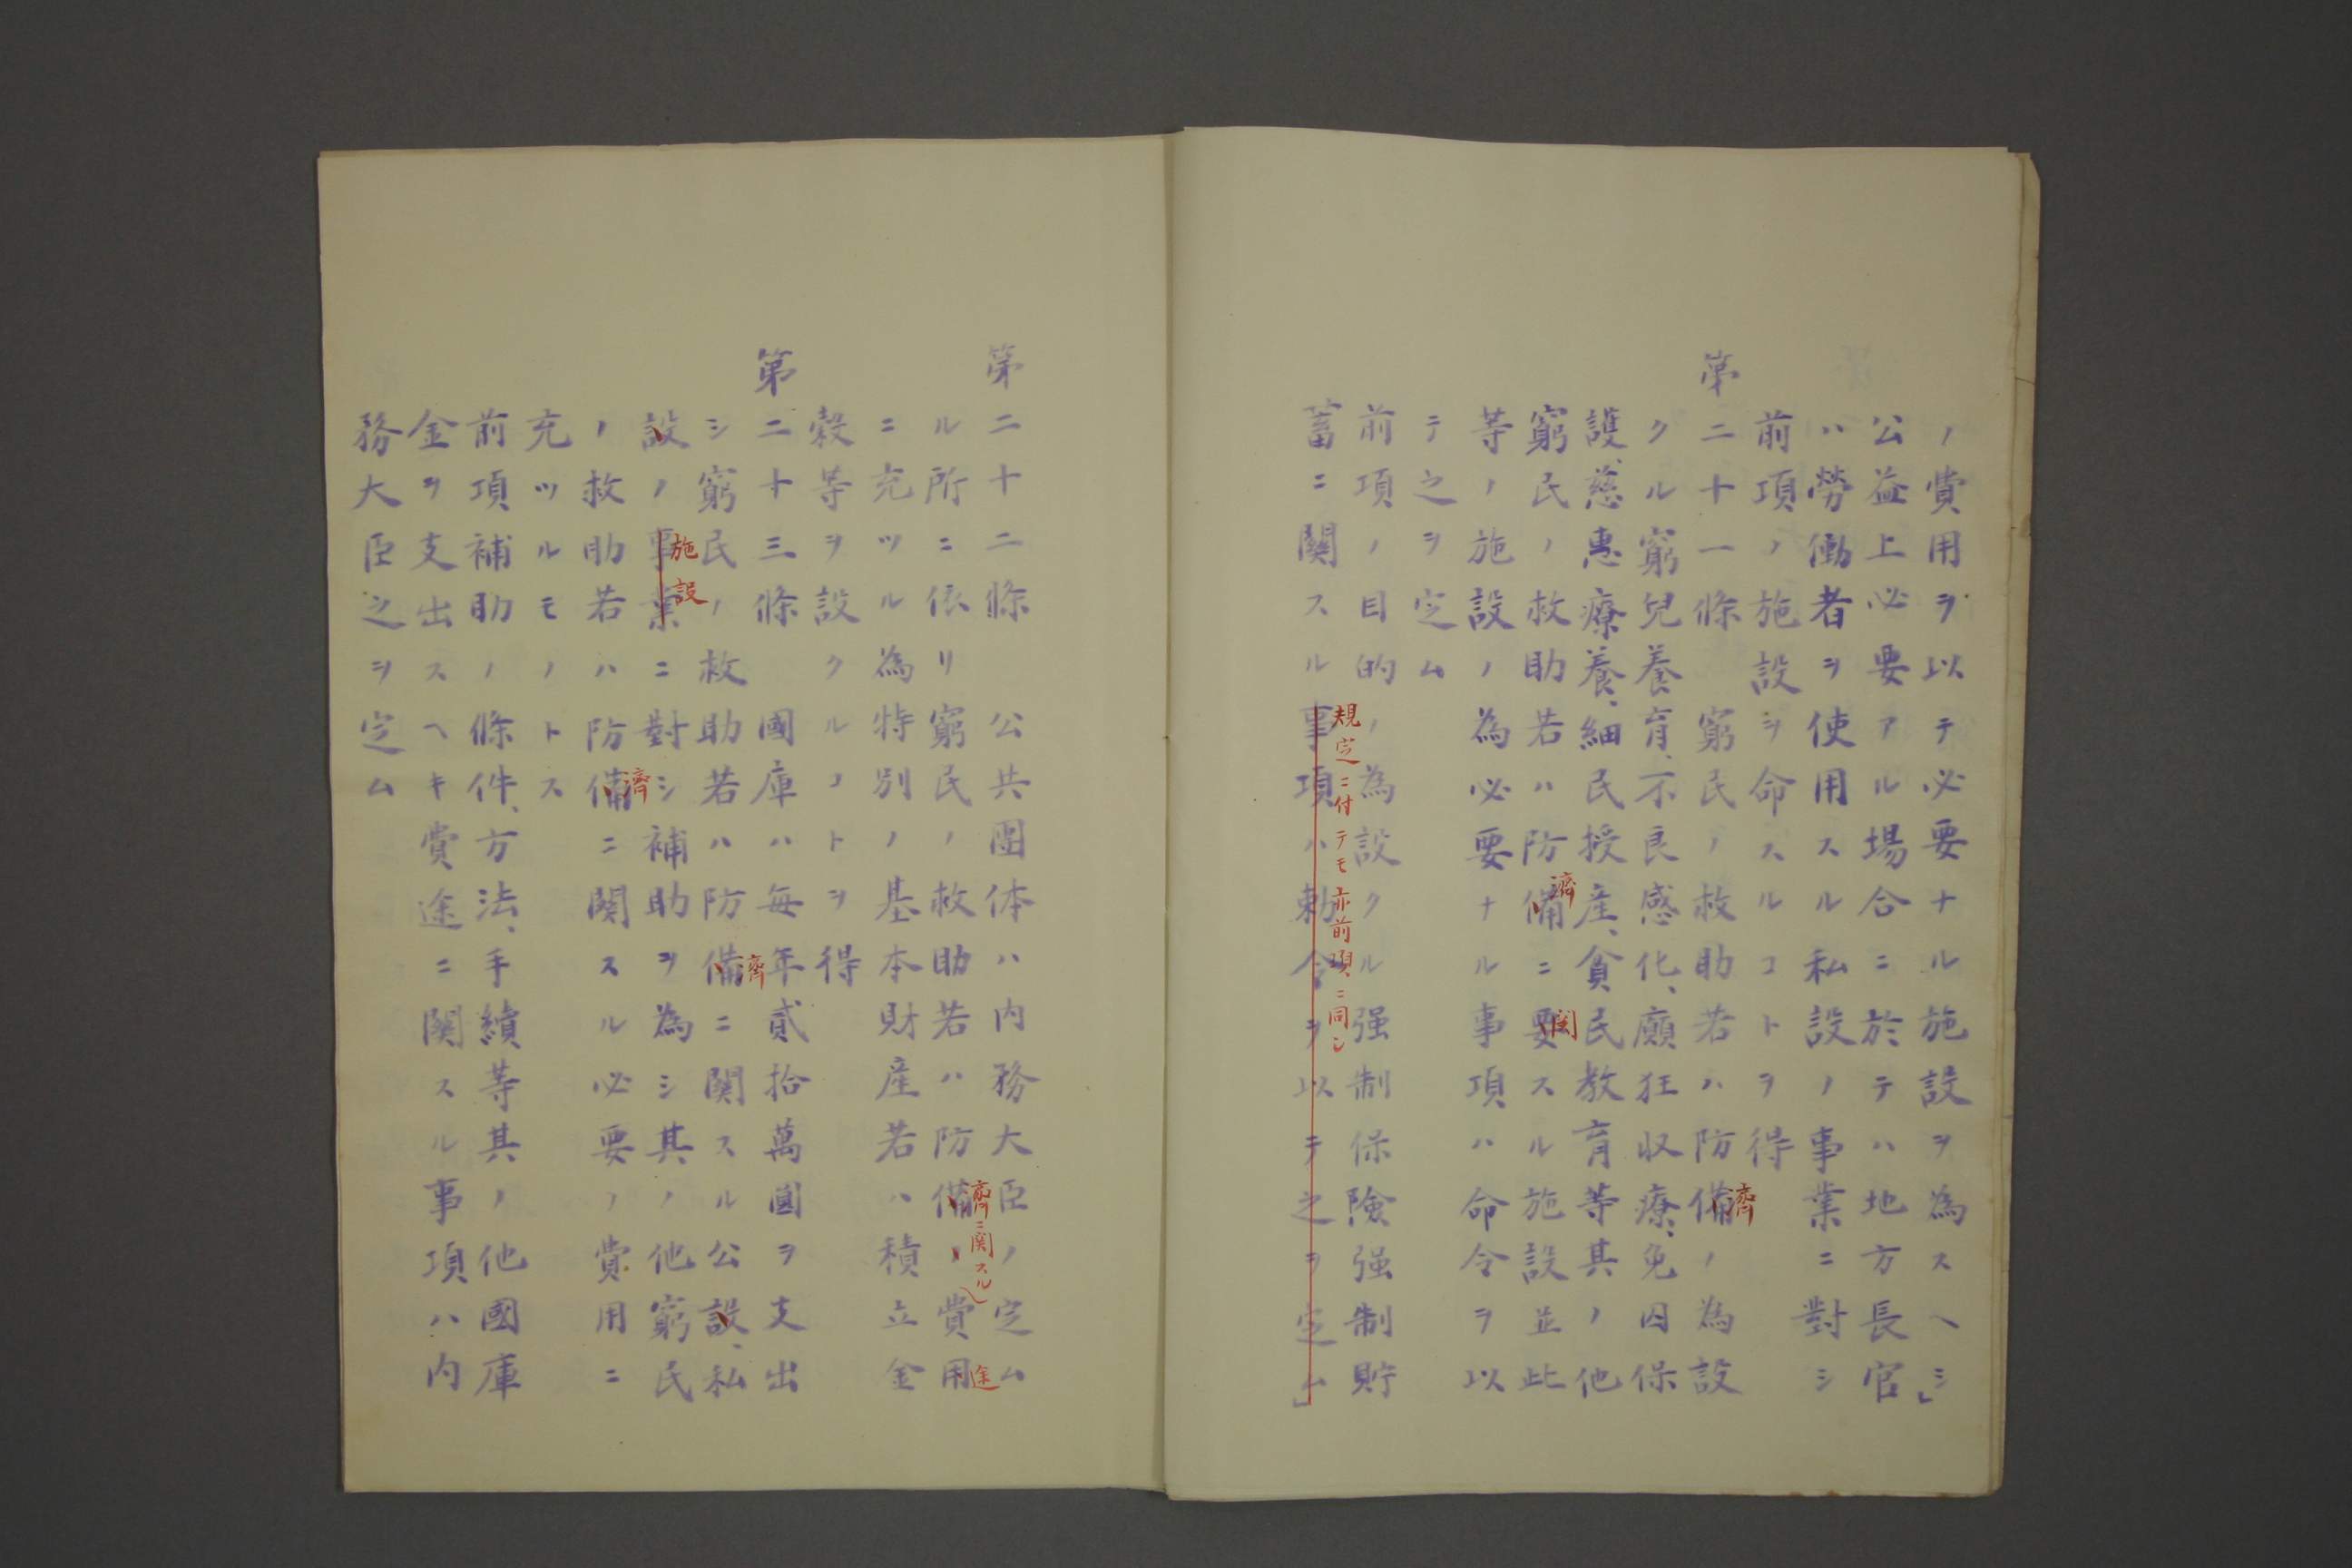 ノ費用ヲ以テ必要ナル施設ヲ為スヘシ」
公益上必要アル場合ニ於テハ地方長官
ハ勞働者ヲ使用スル私設ノ事業ニ對シ
前項ノ施設ヲ命スルコトヲ得
第二十一條 窮民ノ救助若ハ防備ノ為設
濟
クル窮兒養育、不良感化、癲狂収療、免囚保
護、慈惠療養、細民授産、貧民教育等其ノ他
濟
関
窮民ノ救助若ハ防備ニ要スル施設並此
等ノ施設ノ為必要ナル事項ハ命令ヲ以
テ之ヲ定ム
前項ノ目的ノ為設クル强制保険强制貯
規定ニ付テモ亦前項ニ同シ
蓄ニ關スル事項ハ勅令ヲ以テ之ヲ定ム」
第二十二條 公共團体ハ内務大臣ノ定ム
濟ニ関スル
途
ル所ニ依リ窮民ノ救助若ハ防備ノ費用
ニ充ツル為特別ノ基本財産若ハ積立金
穀等ヲ設クルノトヲ得
第二十三條 國庫ハ毎年貳拾萬圓ヲ支出
濟
シ窮民ノ救助若ハ防備ニ関スル公設、私
施設
設ノ事業ニ對シ補助ヲ為シ其ノ他窮民
濟
ノ救助若ハ防備ニ関スル必要ノ費用ニ
充ツルモノトス
前項補助ノ條件、方法、手續等其ノ他國庫
金ヲ支出スヘキ費途ニ関スル事項ハ内
務大臣之ヲ定ム